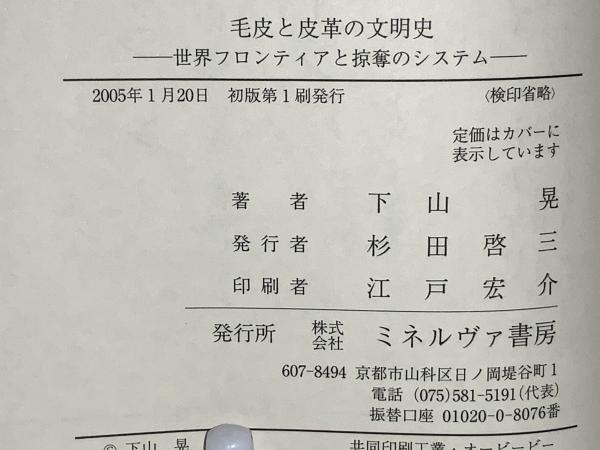 毛皮と皮革の文明史
――世界フロンティアと掠奪のシステム――
2005年1月20日　初版第1刷発行　〈検印省略〉
定価はカバーに
表示しています
著者　下山晃
発行者　杉田啓三
印刷者　江戸宏介
発行所　株式会社　ミネルヴァ書房
607-8494 京都市山科区日ノ岡堤谷町1
電話 (075)581-5191(代表)
振替口座 01020-0-8076番
© 下山 晃　共同印刷工業・オービービー